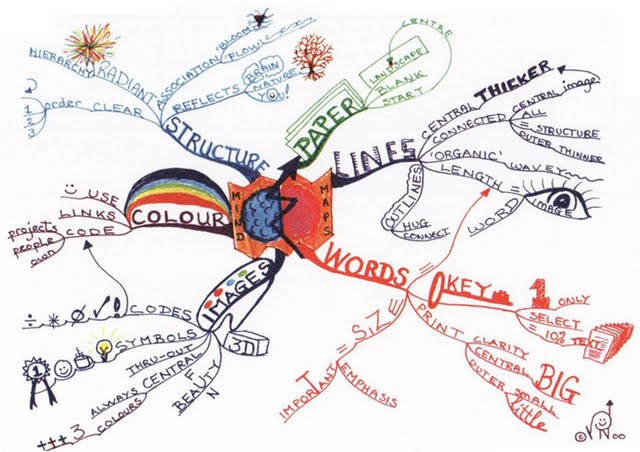 MIND
MAPS
STRUCTURE
RADIANT
HIERARCHY
ASSOCIATION
'BLOOM'
'FLOW'
REFLECTS
BRAIN
NATURE
YOU!
CLEAR
order
1
2
3
PAPER
CENTRE
LANDSCAPE
BLANK
START
LINES
CENTRAL
THICKER
CONNECTED
CENTRAL image!
ALL
= STRUCTURE
OUTER THINNER
'ORGANIC'
WAVEY
LENGTH =
WORD
IMAGE
OUTLINES
HUG
CONNECT
WORDS
=
KEY
1 ONLY
SELECT
= 10% TEXT
PRINT
CLARITY
CENTRAL BIG
OUTER SMALL
little
SIZE
=
IMPORTANT
EMPHASIS
IMAGES
3D
CODES
÷ * Ø √ !
SYMBOLS
1
THRU-OUT
CENTRAL
FUN
BEAUTY
ALWAYS
+++ 3
COLOURS
COLOUR
USE
LINKS
CODE
projects
people
own
©